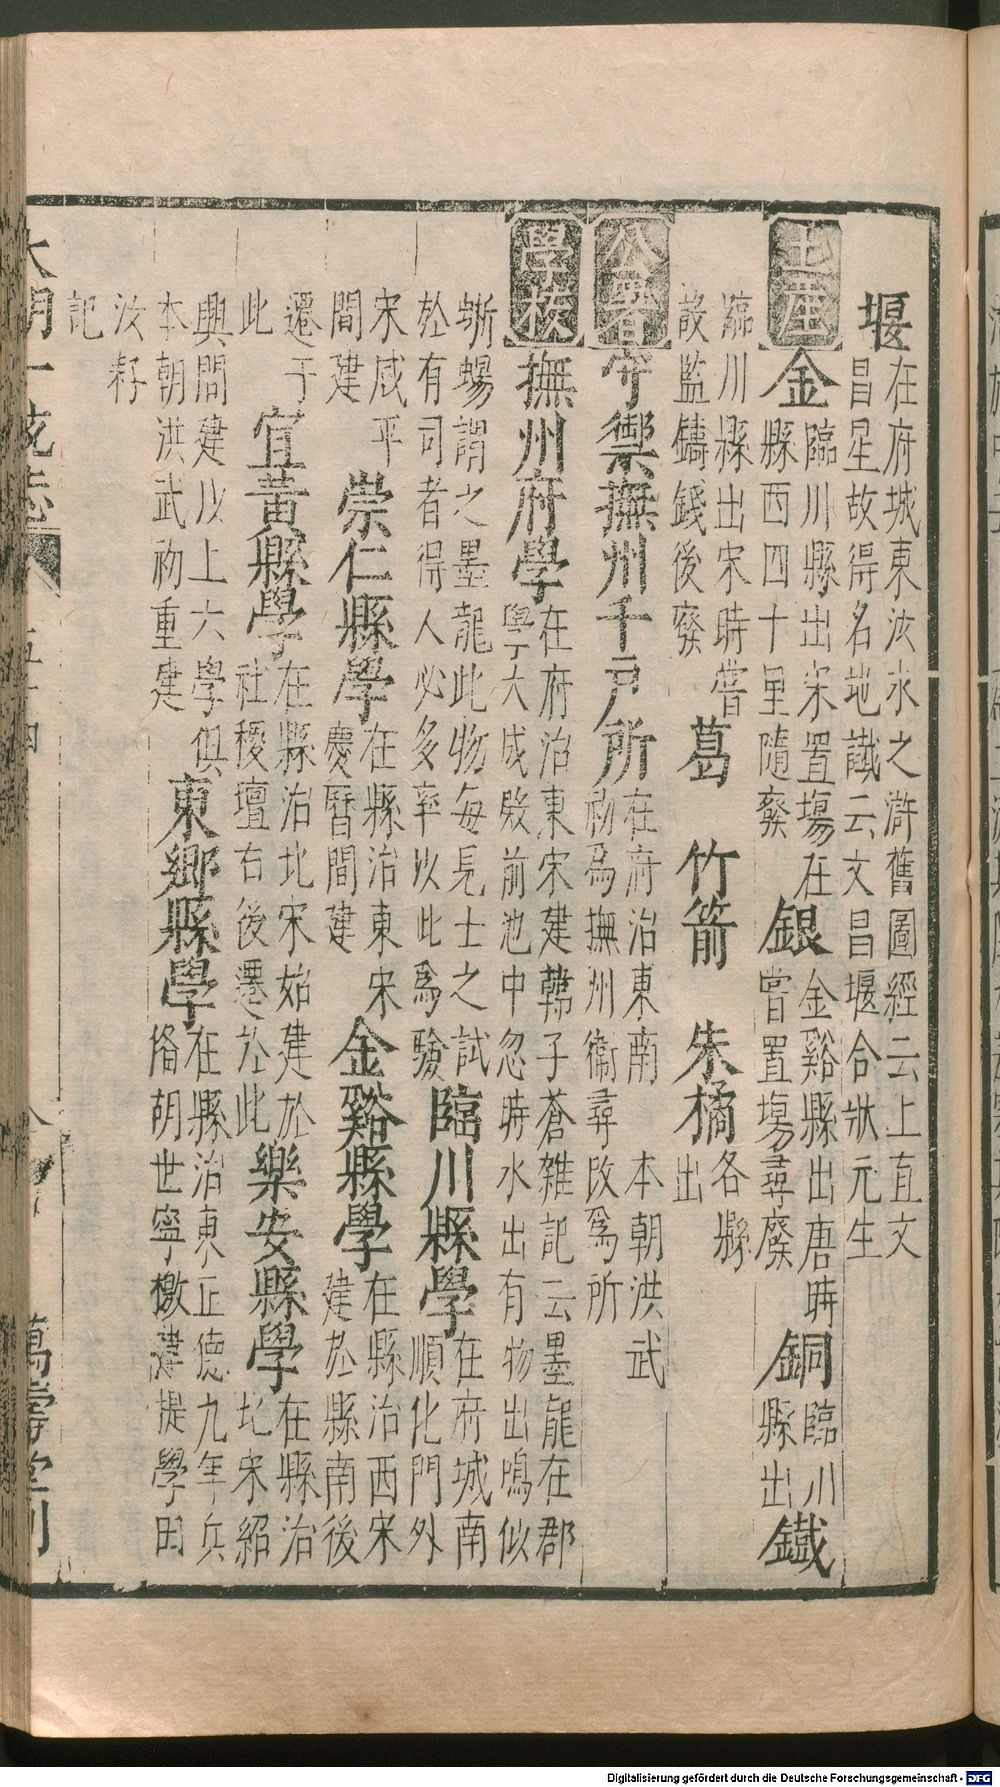 堰在府城東汝水之滸舊圖經云上直文
昌星故得名地讖云文昌堰合狀元生
土産金臨川縣出宋置塲在縣西四十里隨癈銀金谿縣出唐時嘗置塲尋癈銅臨川縣出鐵
臨川縣出宋時嘗
設監鑄錢後癈葛竹箭朱橘各縣出
公署守禦撫州千戶所在府治東南 本朝洪武
初爲撫州衞尋改爲所
學校撫州府學在府治東宋建韓子蒼雜記云墨龍在郡
學大成殿前池中忽時水出有物出鳴似
蜥蜴謂之墨龍此物每見士之試
於有司者得人必多率以此爲驗臨川縣學在府城南順化門外
宋咸平間建崇仁縣學在縣治東宋慶曆間建金谿縣學在縣治西宋建於縣南後
遷于此宜黃縣學在縣治北宋始建於社稷壇右後遷於此樂安縣學在縣治北宋紹
興間建以上六學俱
本朝洪武初重建東鄉縣學在縣治東正德九年兵
俻胡世寧檄建提學田
汝耔
記
大明一統志
五十四
八
萬壽堂刊
Digitalisierung gefördert durch die Deutsche Forschungsgemeinschaft - DFG